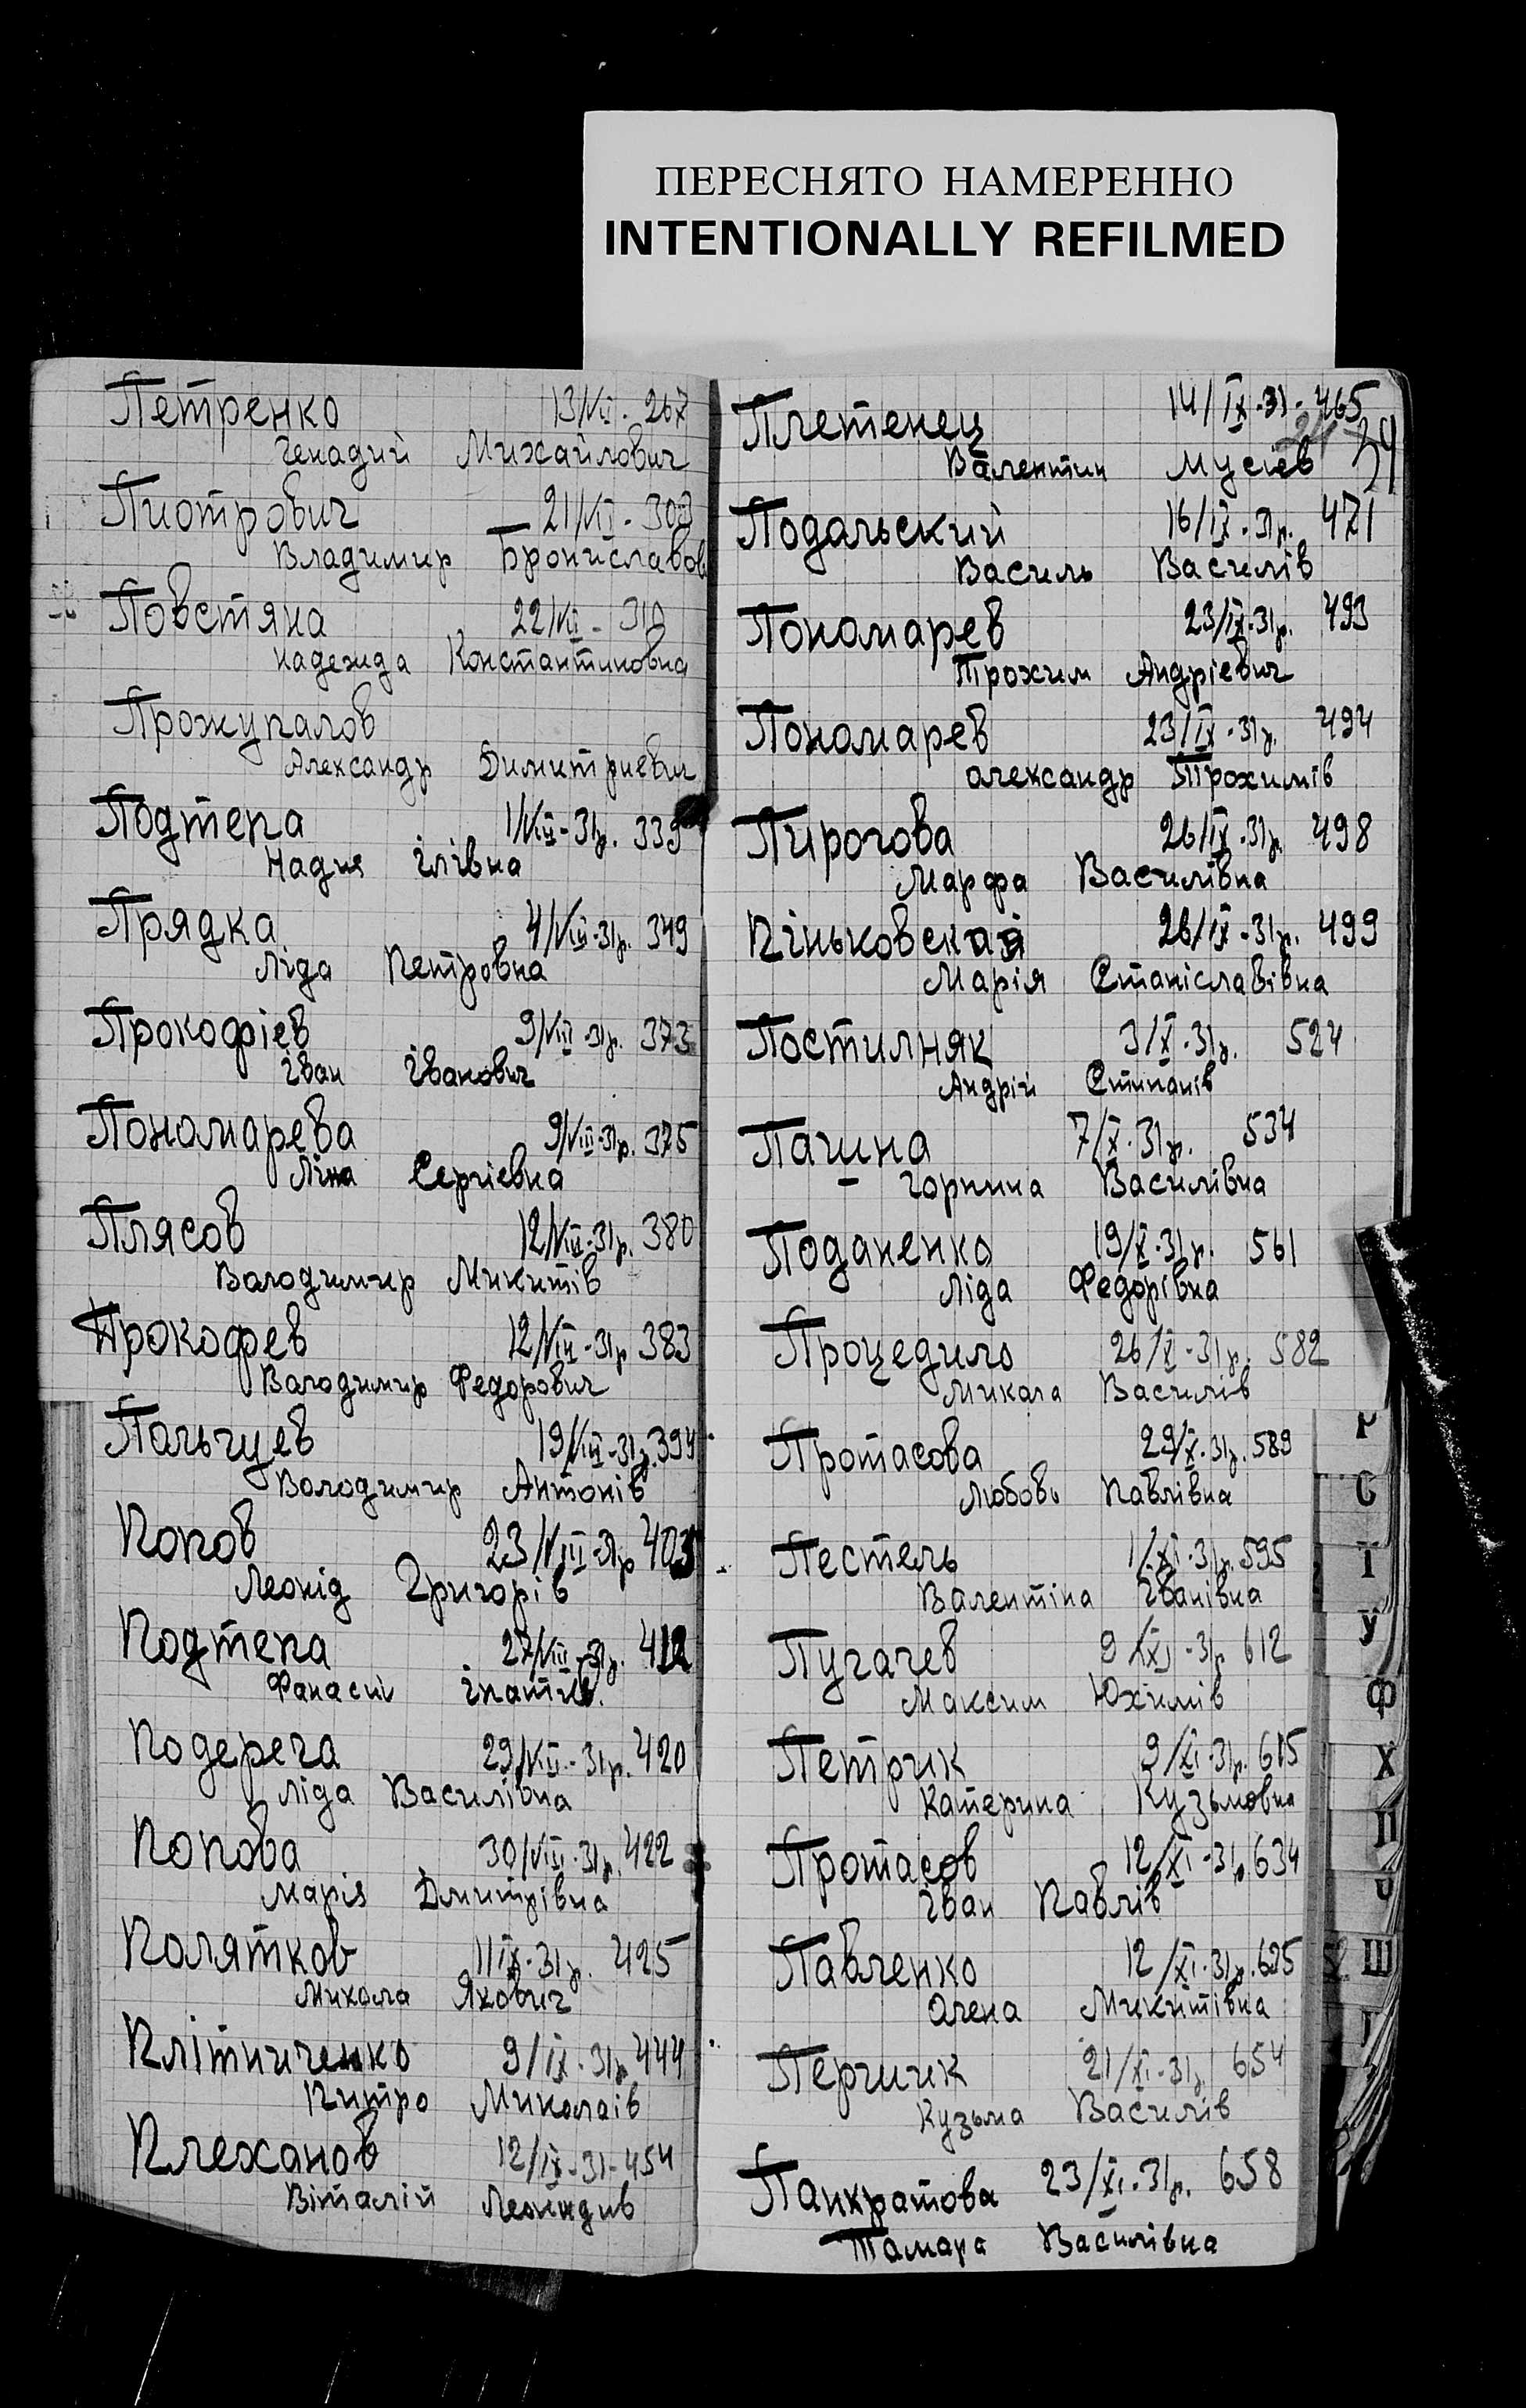 ПЕРЕСНЯТО НАМЕРЕННО
INTENTIONALLY REFILMED
Петренко 13/VII - 267
Генадий Михайлович
Пиотрович 21/VII - 303
Владимир Брониславов
Повстяна 22/VII - 310
Надежда Константиновна
Прожупалов
Александр Димитриевич
Подтепа 1/VIII-31р. 339
Надия Ілівна
Прядка 4/VIII-31р. 349
Ліда Петровна
Прокофіев 9/VIII-31р. 373
Іван Іванович
Пономарева 9/VIII-31р. 375
Ліна Сергіевна
Плясов 12/VIII-31р. 380
Володимир Микитів
Прокофев 12/VIII-31р 383
Володимир Федорович
Пальчуев 19/VIII-31р. 394
Володимир Антонів
Попов 23/VIII-31р 403
Леонід Григорів
Подтепа 27/VIII-31р. 412
Фанасій
Подереча 29/VIII-31р. 420
Ліда Василівна
Попова 30/VIII-31р. 422
Марія Дмитрівна
Полятков 1/IX-31р. 425
Микола Якович
Плітниченко 9/IX-31р 444
Питро Миколаів
Плеханов 12/IX-31-454
Віталій Леонидив
Плетенец 14/IX-31-465
34
Валентин Мусіев
Подальский 16/IX-31р. 471
Василь Василів
Пономарев 23/IX-31р. 493
Трохим Андріевич
Пономарев 23/IX-31р. 494
Олександр Трохимів
Пирогова 26/IX-31р. 498
Марфа Василівна
Піньковская 26/IX-31р. 499
Марія Станіславівна
Постилняк 3/X-31р. 524
Андрій Стипанів
Пашина 7/X-31р. 534
Горпина Василівна
Поданенко 19/X-31р. 561
Ліда Федорівна
Процедило 26/X-31р. 582
Микола Василів
Протасова 29/X-31р. 589
Любовь Павлівна
Пестель 1/XI-31р. 595
Валентіна Іванівна
Пугачев 9/XI-31р 612
Максим Юхимів
Петрик 9/XI-31р. 615
Катерина Кузьмовна
Протасов 12/XI-31р 634
Іван Павлів
Павленко 12/XI-31р. 635
Олена Микитівна
Перчик 21/XI-31р. 654
Кузьма Василів
Панкратова 23/XI-31р. 658
Тамара Василівна
Р
С
Т
У
Ф
Х
Ц
Ч
Ш